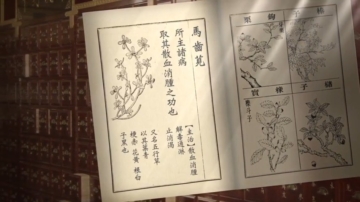 馬齒莧
所主諸病
取其散血消腫之功也
【主治】散血消腫
解毒通淋
止消渴
又名五行草
以其葉青
梗赤 花黃 根白
子黑也